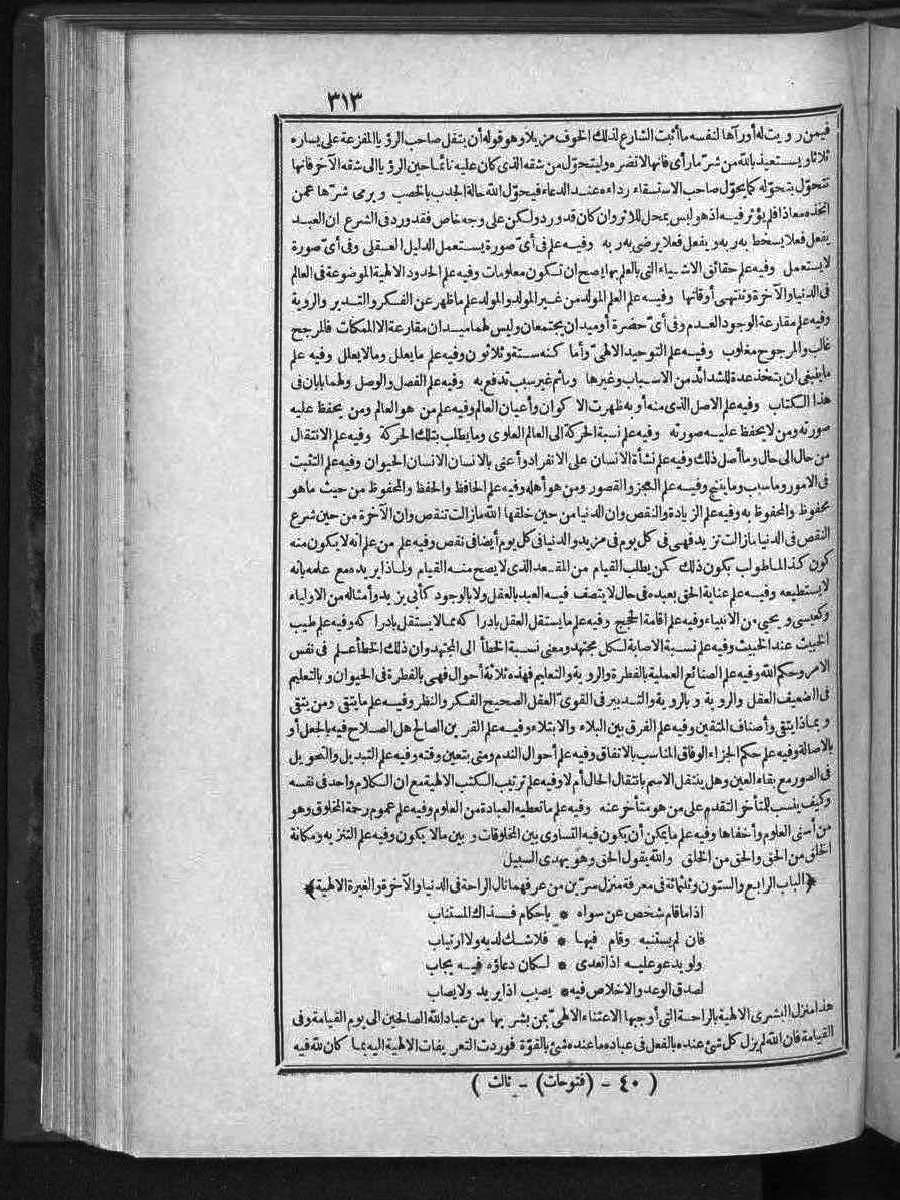 ٣١٣
فيمن رؤيت له أو رآها لنفسه ما أثبت الشارع لذلك الخوف مزيلا وهو قوله أن يتفل صاحب الرؤيا المفزعة على يساره
ثلاثا ويستعيذ بالله من شر ما رأى فانها لا تضره وليتحول من شقه الذى كان عليه نائما حين الرؤيا الى شقه الآخر فانها
تتحول بتحوله كما يحول صاحب الاستسقاء رداءه عند الدعاء فيحول الله حالة الجدب بالخصب ويرمى شرها عمن
اتخذه معاذا فلم يؤثر فيه اذ هو ليس بمحل للاثر وان كان قد ورد ولكن على وجه خاص فقد ورد فى الشرع ان العبد
يفعل فعلا يسخط به ربه ويفعل فعلا يرضى به ربه وفيه علم فى أى صورة يستعمل الدليل العقلى وفى أى صورة
لا يستعمل وفيه علم حقائق الاشياء التى بالعلم بها يصح ان تكون معلومات وفيه علم الحدود الالهية الموضوعة فى العالم
فى الدنيا والآخرة وتنتهى أوقاتها وفيه علم العلم المولد من غير المولد والمولد علم ما ظهر عن الفكر والتدبر والروية
وفيه علم مقارعة الوجود العدم وفى أى حضرة أو ميدان يجتمعان وليس لهما ميدان مقارعة الا الممكنات فالمرجح
غالب والمرجوح مغلوب وفيه علم التوحيد الالهى وأما كنه ستة وثلاثون وفيه علم ما يعلل وما لا يعلل وفيه علم
ما ينبغى ان يتخذ عدة للشدائد من الاسباب وغيرها وما ثم غير سبب تدفع به وفيه علم الفصل والوصل ولهما بابان فى
هذا الكتاب وفيه علم الاصل الذى منه أو به ظهرت الاكوان وأعيان العالم وفيه علم من هو العالم ومن يحفظ عليه
صورته ومن لا يحفظ عليه صورته وفيه علم نسبة الحركة الى العالم العلوى وما يطلب بتلك الحركة وفيه علم الانتقال
من حال الى حال وما أصل ذلك وفيه علم نشأة الانسان على الانفراد وأعنى بالانسان الانسان الحيوان وفيه علم التثبت
فى الامور وما سبب وما ينتج وفيه علم العجز والقصور ومن هو أهله وفيه علم الحافظ والحفظ والمحفوظ من حيث ما هو
محفوظ والمحفوظ به وفيه علم الزيادة والنقص وان الدنيا من حين خلقها الله ما زالت تنقص وان الآخرة من حين شرع
النقص فى الدنيا ما زالت تزيد فهى فى كل يوم فى مزيد والدنيا فى كل يوم أيضا فى نقص وفيه علم من علم انه لا يكون منه
كون كذا لما طولب بكون ذلك كمن يطلب القيام من المقعد الذى لا يصح منه القيام ولماذا يريده مع علمه بانه
لا يستطيعه وفيه علم عناية الحق بعبده فى حال لا يتصف فيه العبد بالعقل ولا بالوجود كأبى يزيد وأمثاله من الاولياء
وكعيسى ويحيى من الانبياء وفيه علم اقامة الحجج وفيه علم ما يستقل العقل بادراكه مما لا يستقل بادراكه وفيه علم طيب
الخبيث عند الخبيث وفيه علم نسبة الاصابة لكل مجتهد ومعنى نسبة الخطأ الى المجتهد وان ذلك الخطأ علم فى نفس
الامر وحكم الله وفيه علم الصنائع العملية بالفطرة والروية والتعليم فهذه ثلاثة أحوال فهى بالفطرة فى الحيوان وبالتعليم
فى الضعيف العقل والروية وبالروية والتدبير فى القوى العقل الصحيح الفكر والنظر وفيه علم ما يتقى ومن يتقى
وبماذا يتقى وأصناف المتقين وفيه علم الفرق بين البلاء والابتلاء وفيه علم القرين الصالح هل الصلاح فيه بالجعل أو
بالاصالة وفيه علم حكم الجزاء الوفاق المناسب بالاتفاق وفيه علم أحوال الندم ومتى يتعين وقته وفيه علم التبديل والتحويل
فى الصور مع بقاء العين وهل ينتقل الاسم بانتقال الحال أم لا وفيه علم ترتيب الكتب الالهية مع ان الكلام واحد فى نفسه
وكيف ينسب للمتأخر التقدم على من هو متأخر عنه وفيه علم ما تعطيه العبادة من العلوم وفيه علم عموم رحمة المخلوق وهو
من أسنى العلوم وأخفاها وفيه علم ما يمكن أن يكون فيه التساوى بين المخلوقات وبين ما لا يكون وفيه علم التنزيه ومكانة
الخلق من الحق والحق من الخلق والله يقول الحق وهو يهدى السبيل
﴿الباب الرابع والستون وثلثمائة فى معرفة منزل سرين من عرفهما نال الراحة فى الدنيا والآخرة والغيرة الالهية﴾
اذا ما قام شخص عن سواه * باحكام فذاك المستناب
فان لم يستنبه وقام فيها * فلا شك لديه ولا ارتياب
ولو يدعو عليه اذا تعدى * لكان دعاؤه فيه يجاب
لصدق الوعد والاخلاص فيه * يصيب اذا يريد ولا يصاب
هذا منزل البشرى الالهية بالراحة التى أوجبها الاعتناء الالهى بمن بشر بها من عباد الله الصالحين الى يوم القيامة وفى
القيامة فان الله لم يزل كل شئ عنده بالفعل فى عباده ما عنده شئ بالقوة فوردت التعريفات الالهية اليه بما كان لله فيه
( ٤٠ - (فتوحات) - ثالث )